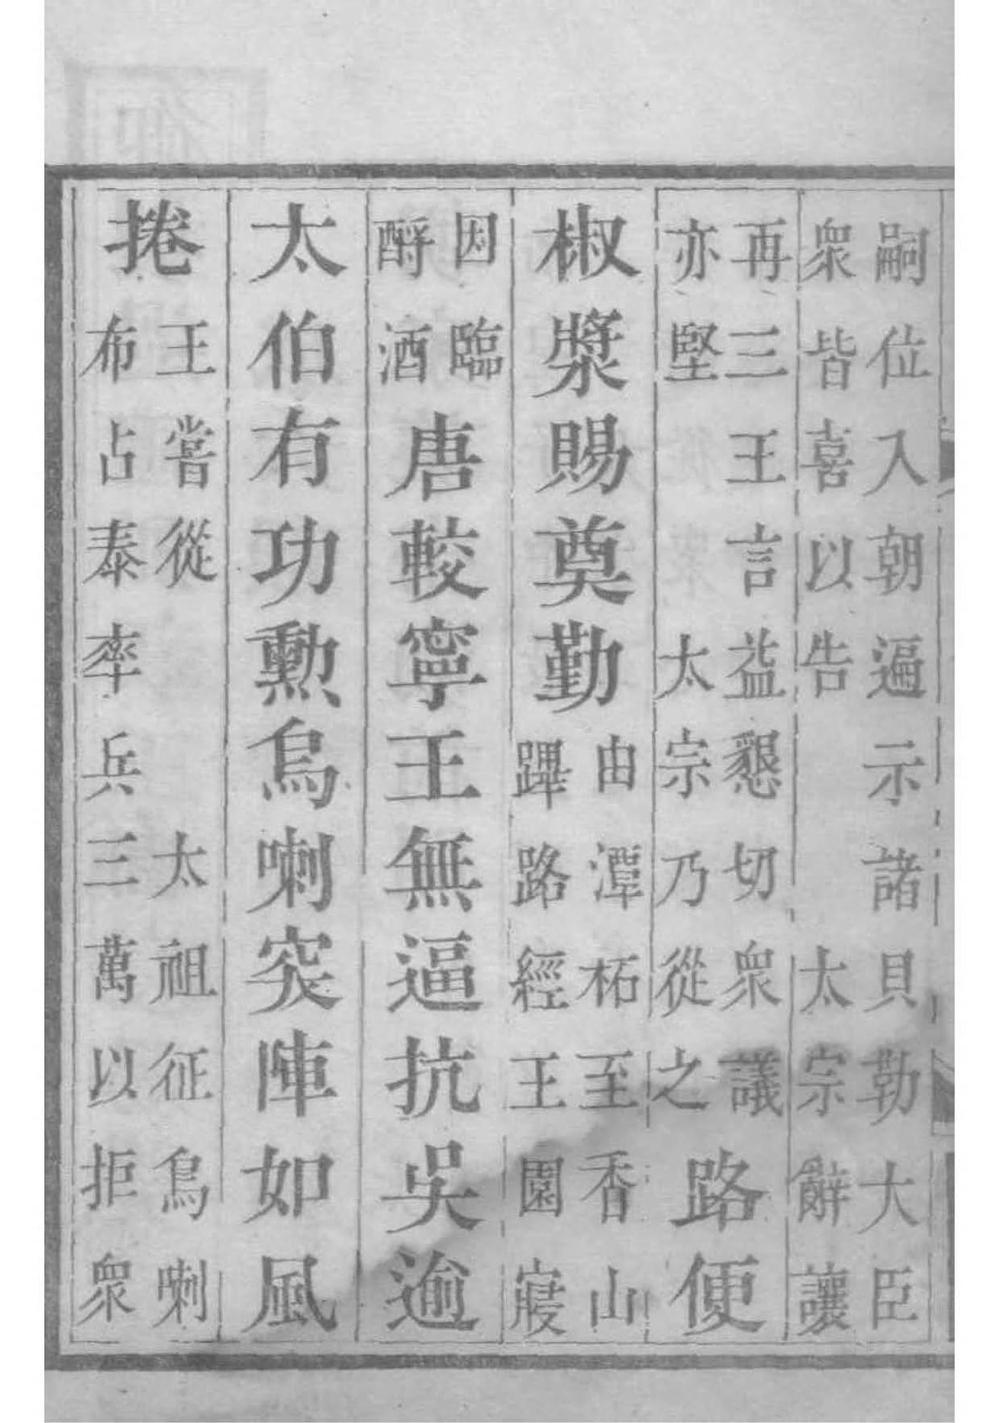 嗣位入朝遍示諸貝勒大臣
衆皆喜以告　太宗辭讓
再三王言益懇切衆議
亦堅　太宗乃從之
路便
椒漿賜奠勤
由潭柘至香山
蹕路經王園寢
因臨
酹酒
唐較寧王無逼抗吳逾
太伯有功勳烏喇突陣如風
捲
王嘗從　太祖征烏喇
布占泰率兵三萬以拒衆